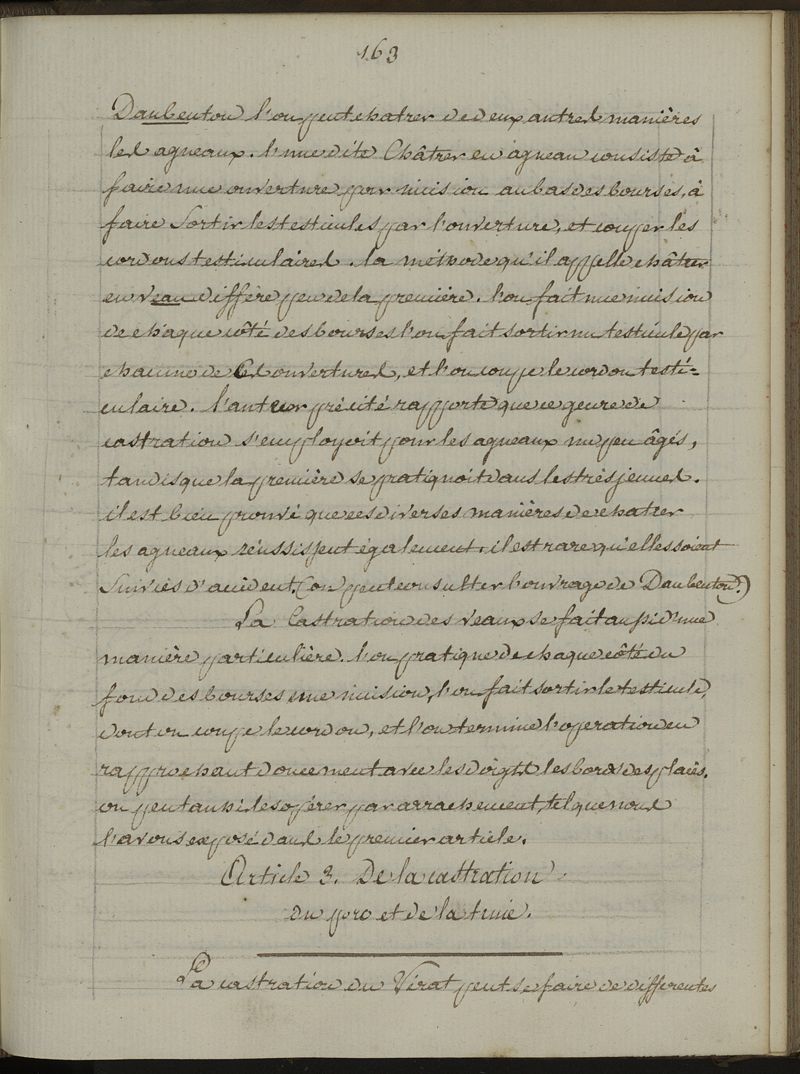 163
Daubenton l'on peut chatrer de deux autres manières
les agneaux. l'une dite Châtrer en agneau consiste à
faire une ouverture par incision au bas des bourses, à
faire Sortir les testicules par l'ouverture, et couper les
cordons testiculaires. la méthode qu'il appelle châtrer
en veau diffère peu de la première. l'on fait une incision
de chaque côté des bourses l'on fait sortir un testicule par
chacune de Ces ouvertures, et l'on coupe le cordon testi=
culaire. l'auteur précité rapporte que ce genre de
castration s'employoit pour les agneaux un peu âgés,
tandis que la première se pratiquoit dans les très jeunes.
il est bien prouvé que ces diverses manières de chatrer
les agneaux réussissent également. il est rare qu'elles soient
Suivies d'accident. (on peut consulter l'ouvrage de Daubenton.)
La Castration des veaux se fait aussi d'une
manière particulière. l'on pratique de chaque côté du
fond des bourses une incision, l'on fait sortir le testicule,
dont on coupe le cordon, et l'on termine l'operation en
rapprochant doucement avec les doigts les bords des plaies.
on peut aussi les opérer par arrachement, tel que nous
l'avons exposé dans le premier article.
Article 3. De la castration
du porc et de la truie.
La castration du Vérat peut se faire de differentes